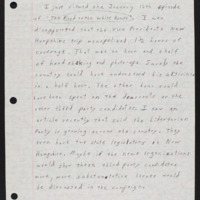 I just viewed the January 10th episode
of "The Road to the White House". I was
disappointed that the Vice President's New
Hampshire trip monopolized 1½ hours of
coverage. That was an hour and a half
of hand shaking and photo ops. Surely the
country could have understood his activities
in a half hour. The other hour could
have been spent on the Democrats or the
other third party candidates. I saw an
article recently that said the Libertarian
Party is growing across the country. They
even have two state legislators in New
Hampshire. Maybe if the news organizations
would show these third party candidates
more, more substantative issues would
be discussed in the campaign.